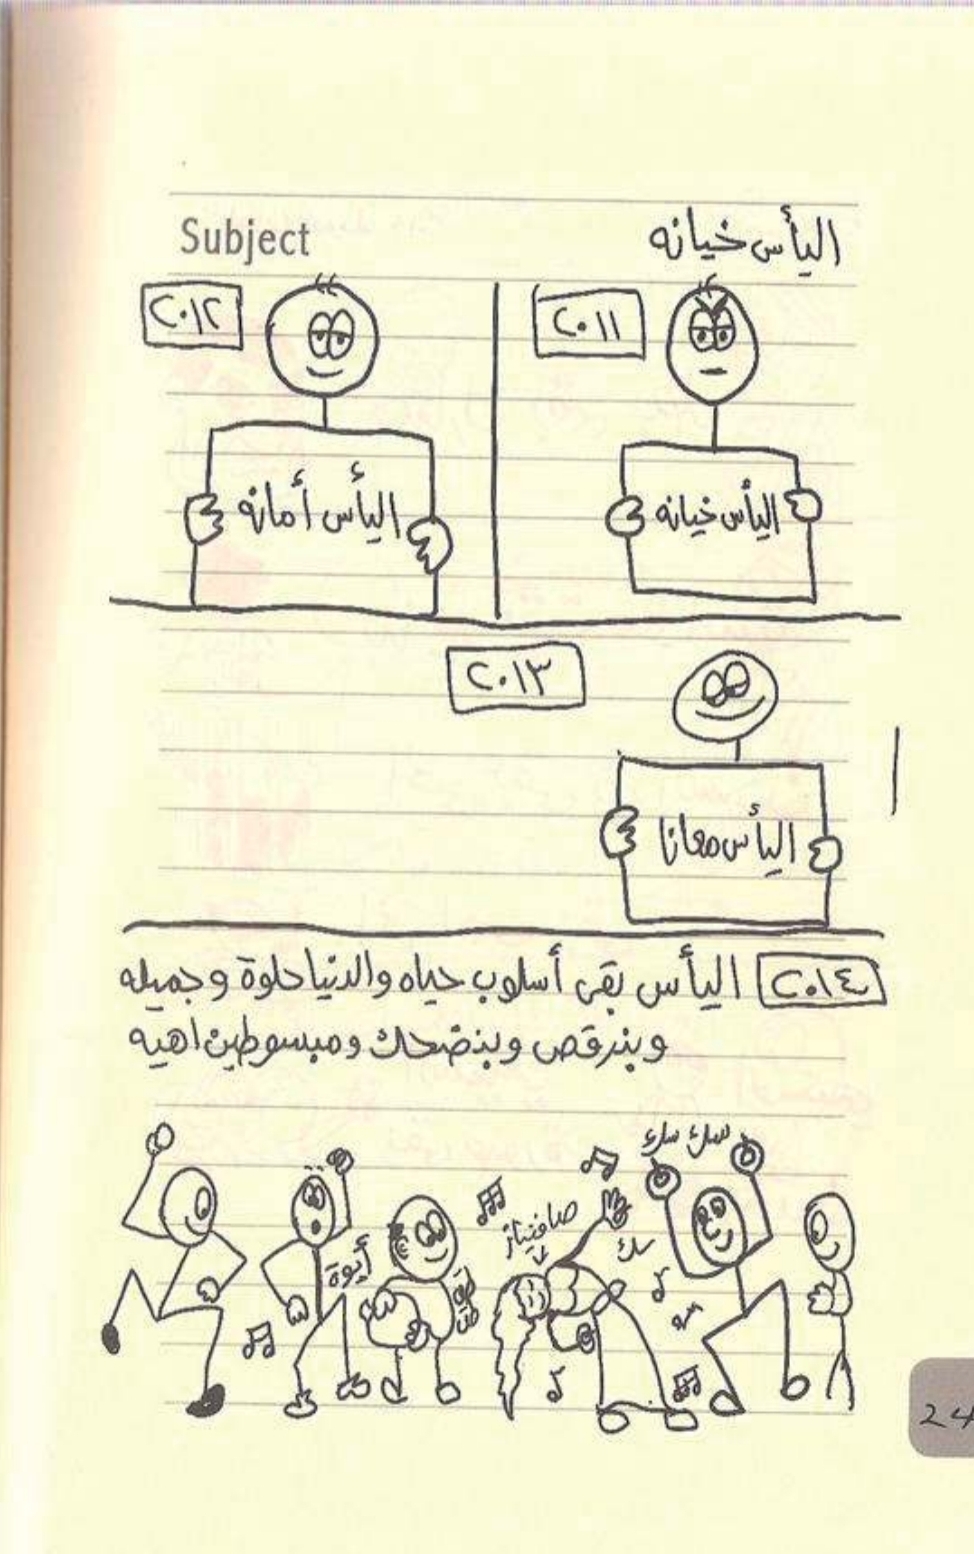 Subject
اليأس خيانه
٢٠١١
اليأس خيانه
٢٠١٢
اليأس أمانه
٢٠١٣
اليأس معانا
٢٠١٤ اليأس بقى أسلوب حياه والدنيا حلوة وجميله
وبنرقص وبنضحك ومبسوطين اهيه
سك سك
صافيناز
سك
أيوة
24